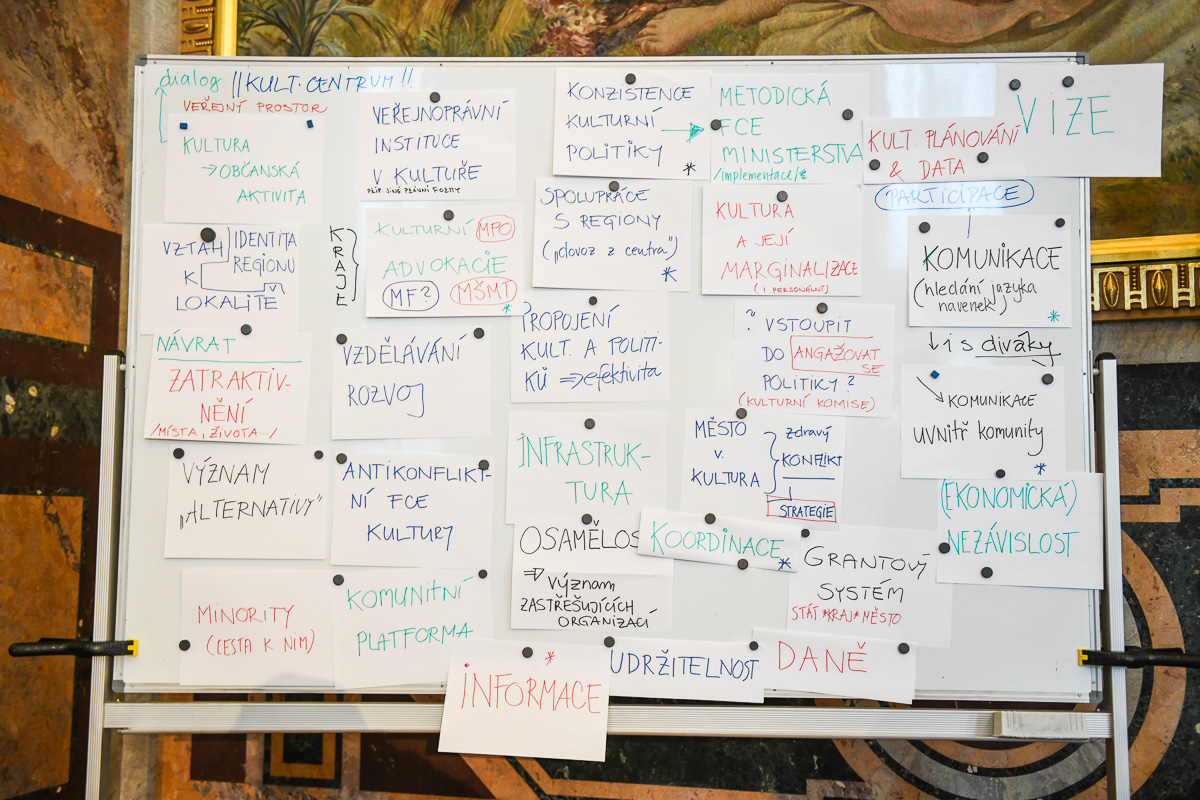 dialog !! KULT. CENTRUM!!
VEŘEJNÝ PROSTOR
KULTURA
→ OBČANSKÁ
AKTIVITA
VEŘEJNOPRÁVNÍ
INSTITUCE
V KULTUŘE
PŘÍP. JINÉ PRÁVNÍ FORMY
KONZISTENCE
KULTURNÍ
POLITIKY *
METODICKÁ
FCE
MINISTERSTVA
/implementace/
KULT. PLÁNOVÁNÍ
& DATA
VIZE
PARTICIPACE
VZTAH
K
LOKALITĚ
IDENTITA
REGIONU
KRAJE
KULTURNÍ MPO
ADVOKACIE
MF? MŠMT *
SPOLUPRÁCE
S REGIONY
(„dovoz z centra")
*
KULTURA
A JEJÍ
MARGINALIZACE
(I PERSONÁLNÍ)
KOMUNIKACE
(hledání jazyka
navenek) *
↓ i s diváky
NÁVRAT
ZATRAKTIV-
NĚNÍ
/MÍSTA, ŽIVOTA.../
VZDĚLÁVÁNÍ
ROZVOJ
? PROPOJENÍ
KULT. A POLITI-
KŮ ⇒ efektivita
? VSTOUPIT
DO ANGAŽOVAT
SE
POLITIKY?
(KULTURNÍ KOMISE)
KOMUNIKACE
UVNITŘ komunity
*
VÝZNAM
„ALTERNATIVY"
ANTIKONFLIKT-
NÍ FCE
KULTURY
INFRASTRUK-
TURA
MĚSTO
v.
KULTURA
zdravý
KONFLIKT
STRATEGIE
(EKONOMICKÁ)
NEZÁVISLOST
OSAMĚLOS
⇒ význam
ZASTŘEŠUJÍCÍCH
ORGANIZACÍ
KOORDINACE *
GRANTOVÝ
SYSTÉM
STÁT *KRAJ* MĚSTO
MINORITY
(CESTA K NIM)
KOMUNITNÍ
PLATFORMA
*
INFORMACE
UDRŽITELNOST
DANĚ